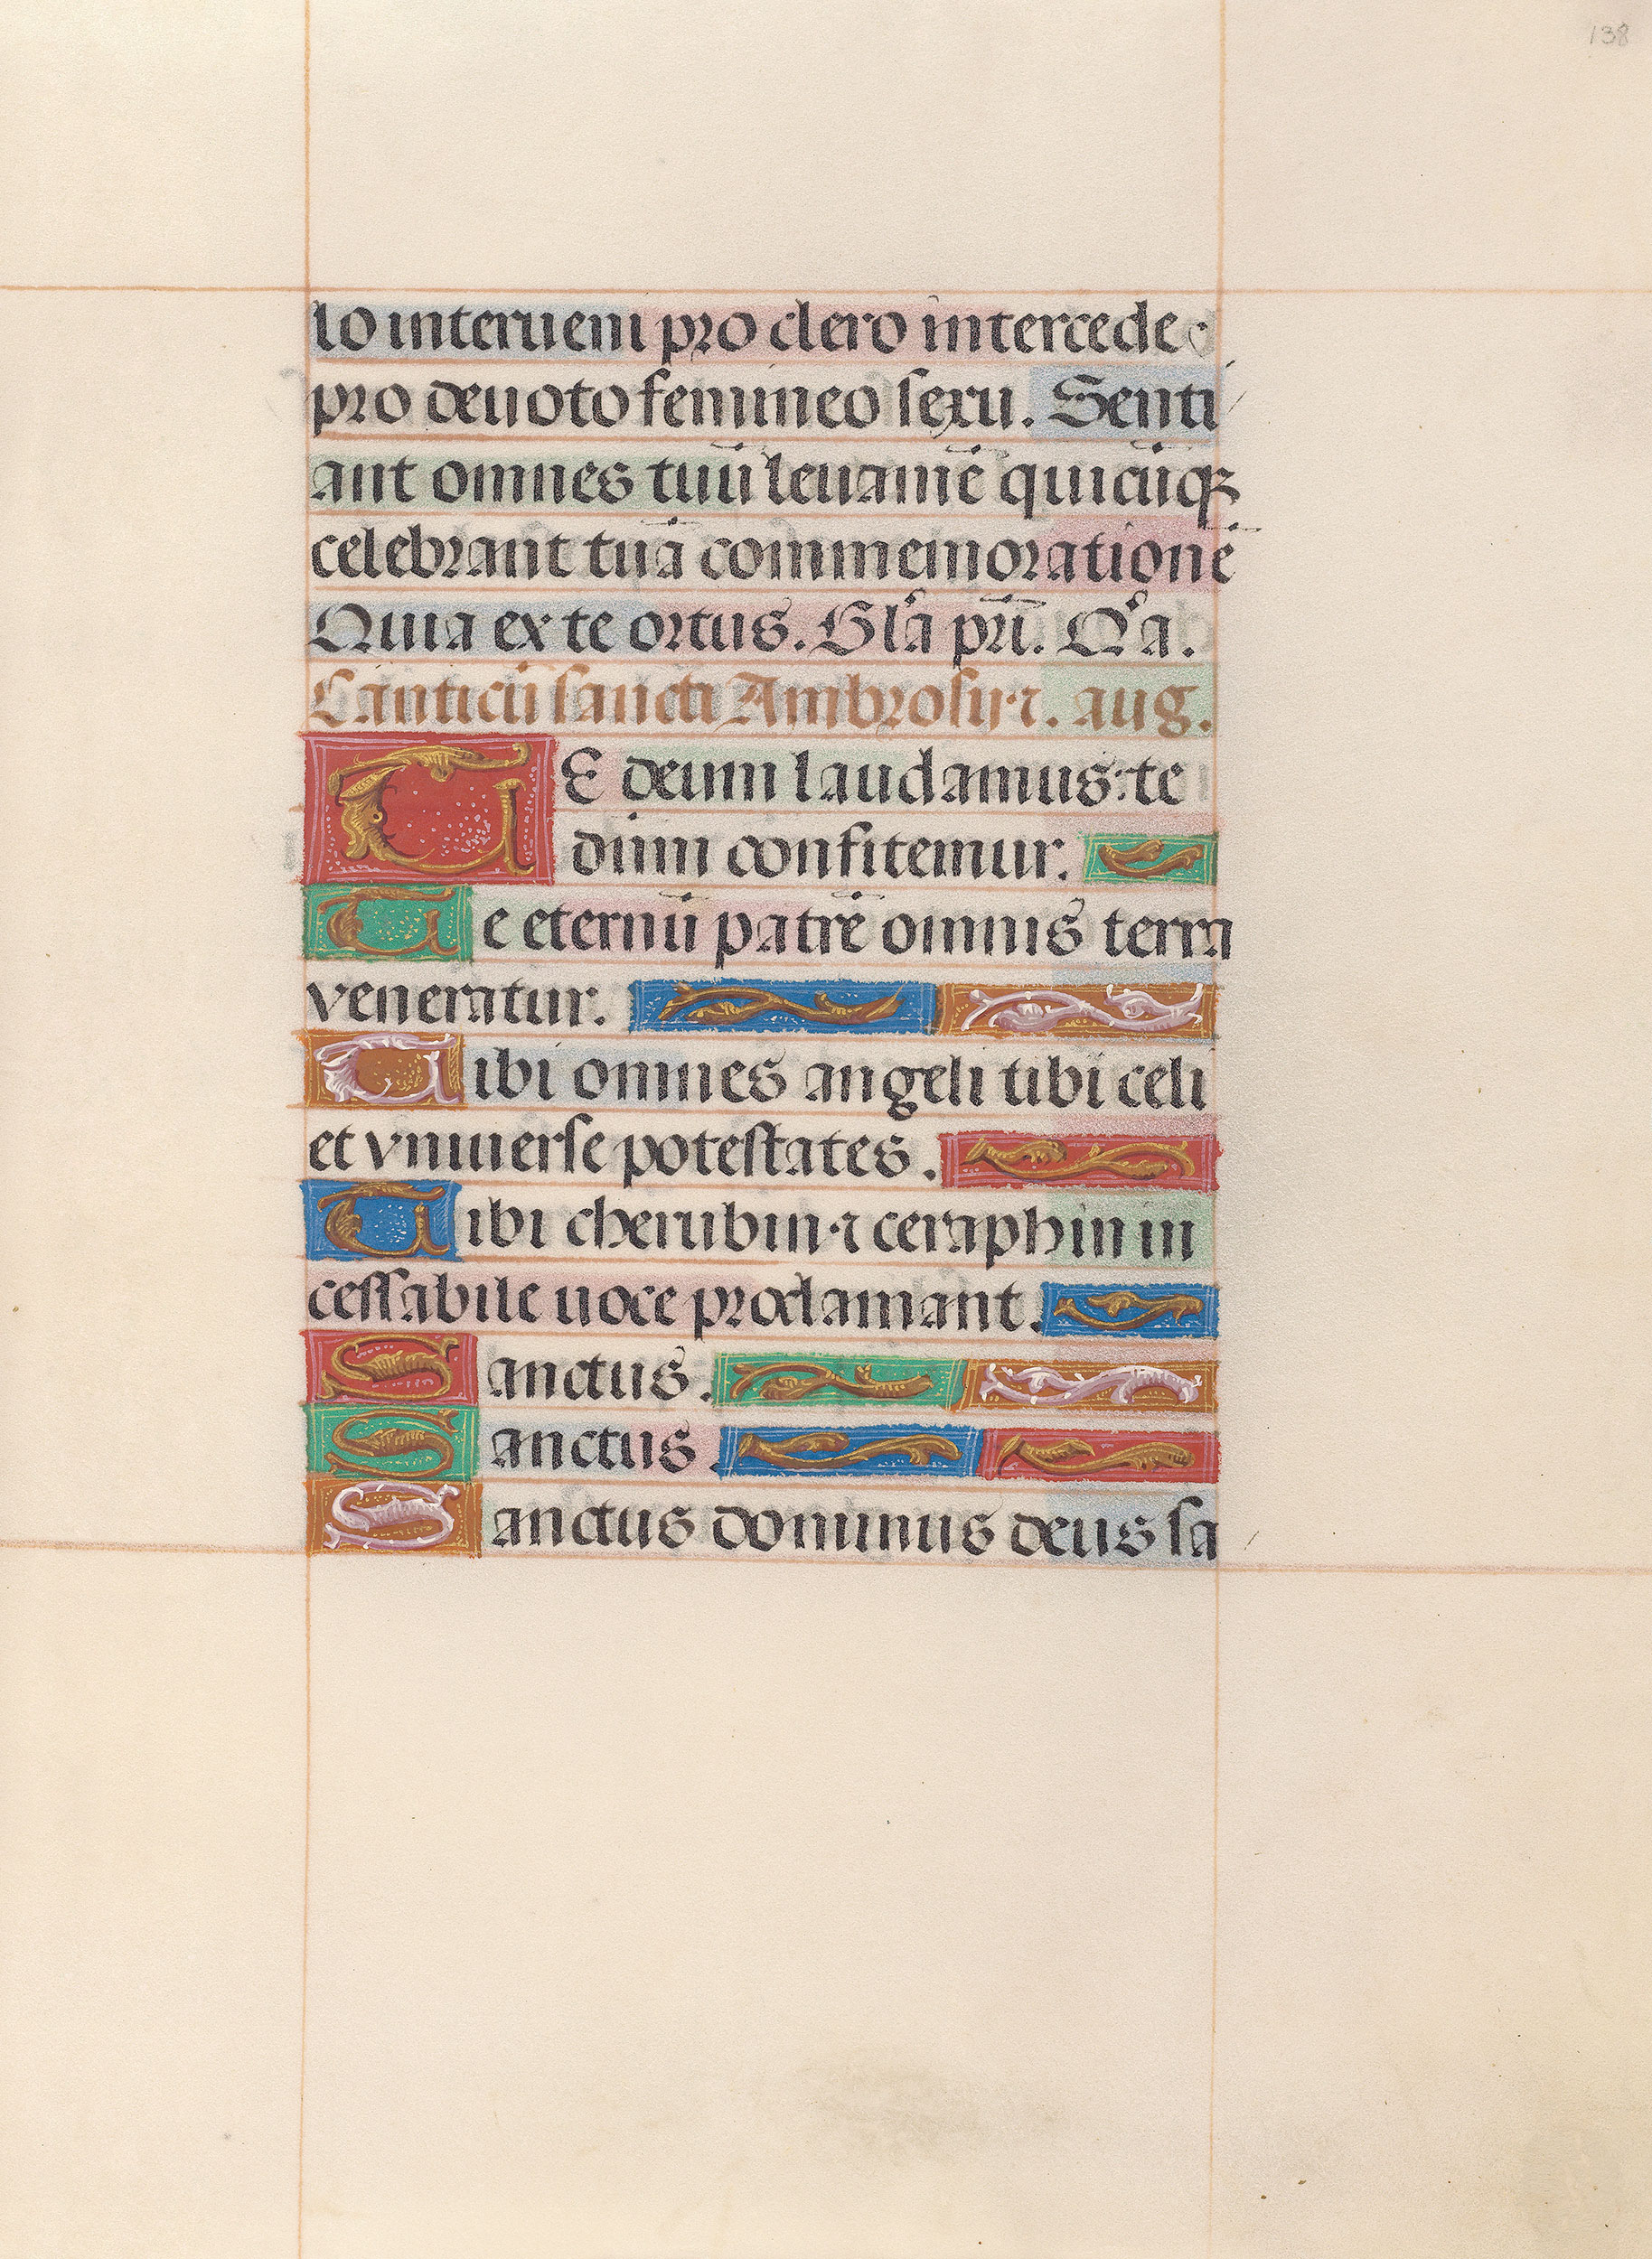 138
lo interueni pro clero intercede
pro deuoto femineo sexu. Senti
ant omnes tuū leuamē quicūqꝫ
celebrant tuā commemorationē
Quia ex te ortus. Gl'a pr̄i. Qͥa.
Canticū sancti Ambrosii ⁊. aug.
TE deum laudamus: te
dnm̄ confitemur.
Te eternū patrē omnis terra
veneratur.
Tibi omnes angeli tibi celi
et vniuerse potestates.
Tibi cherubin ⁊ ceraphin in
cessabile uoce proclamant.
Sanctus.
Sanctus.
Sanctus dominus deus sa